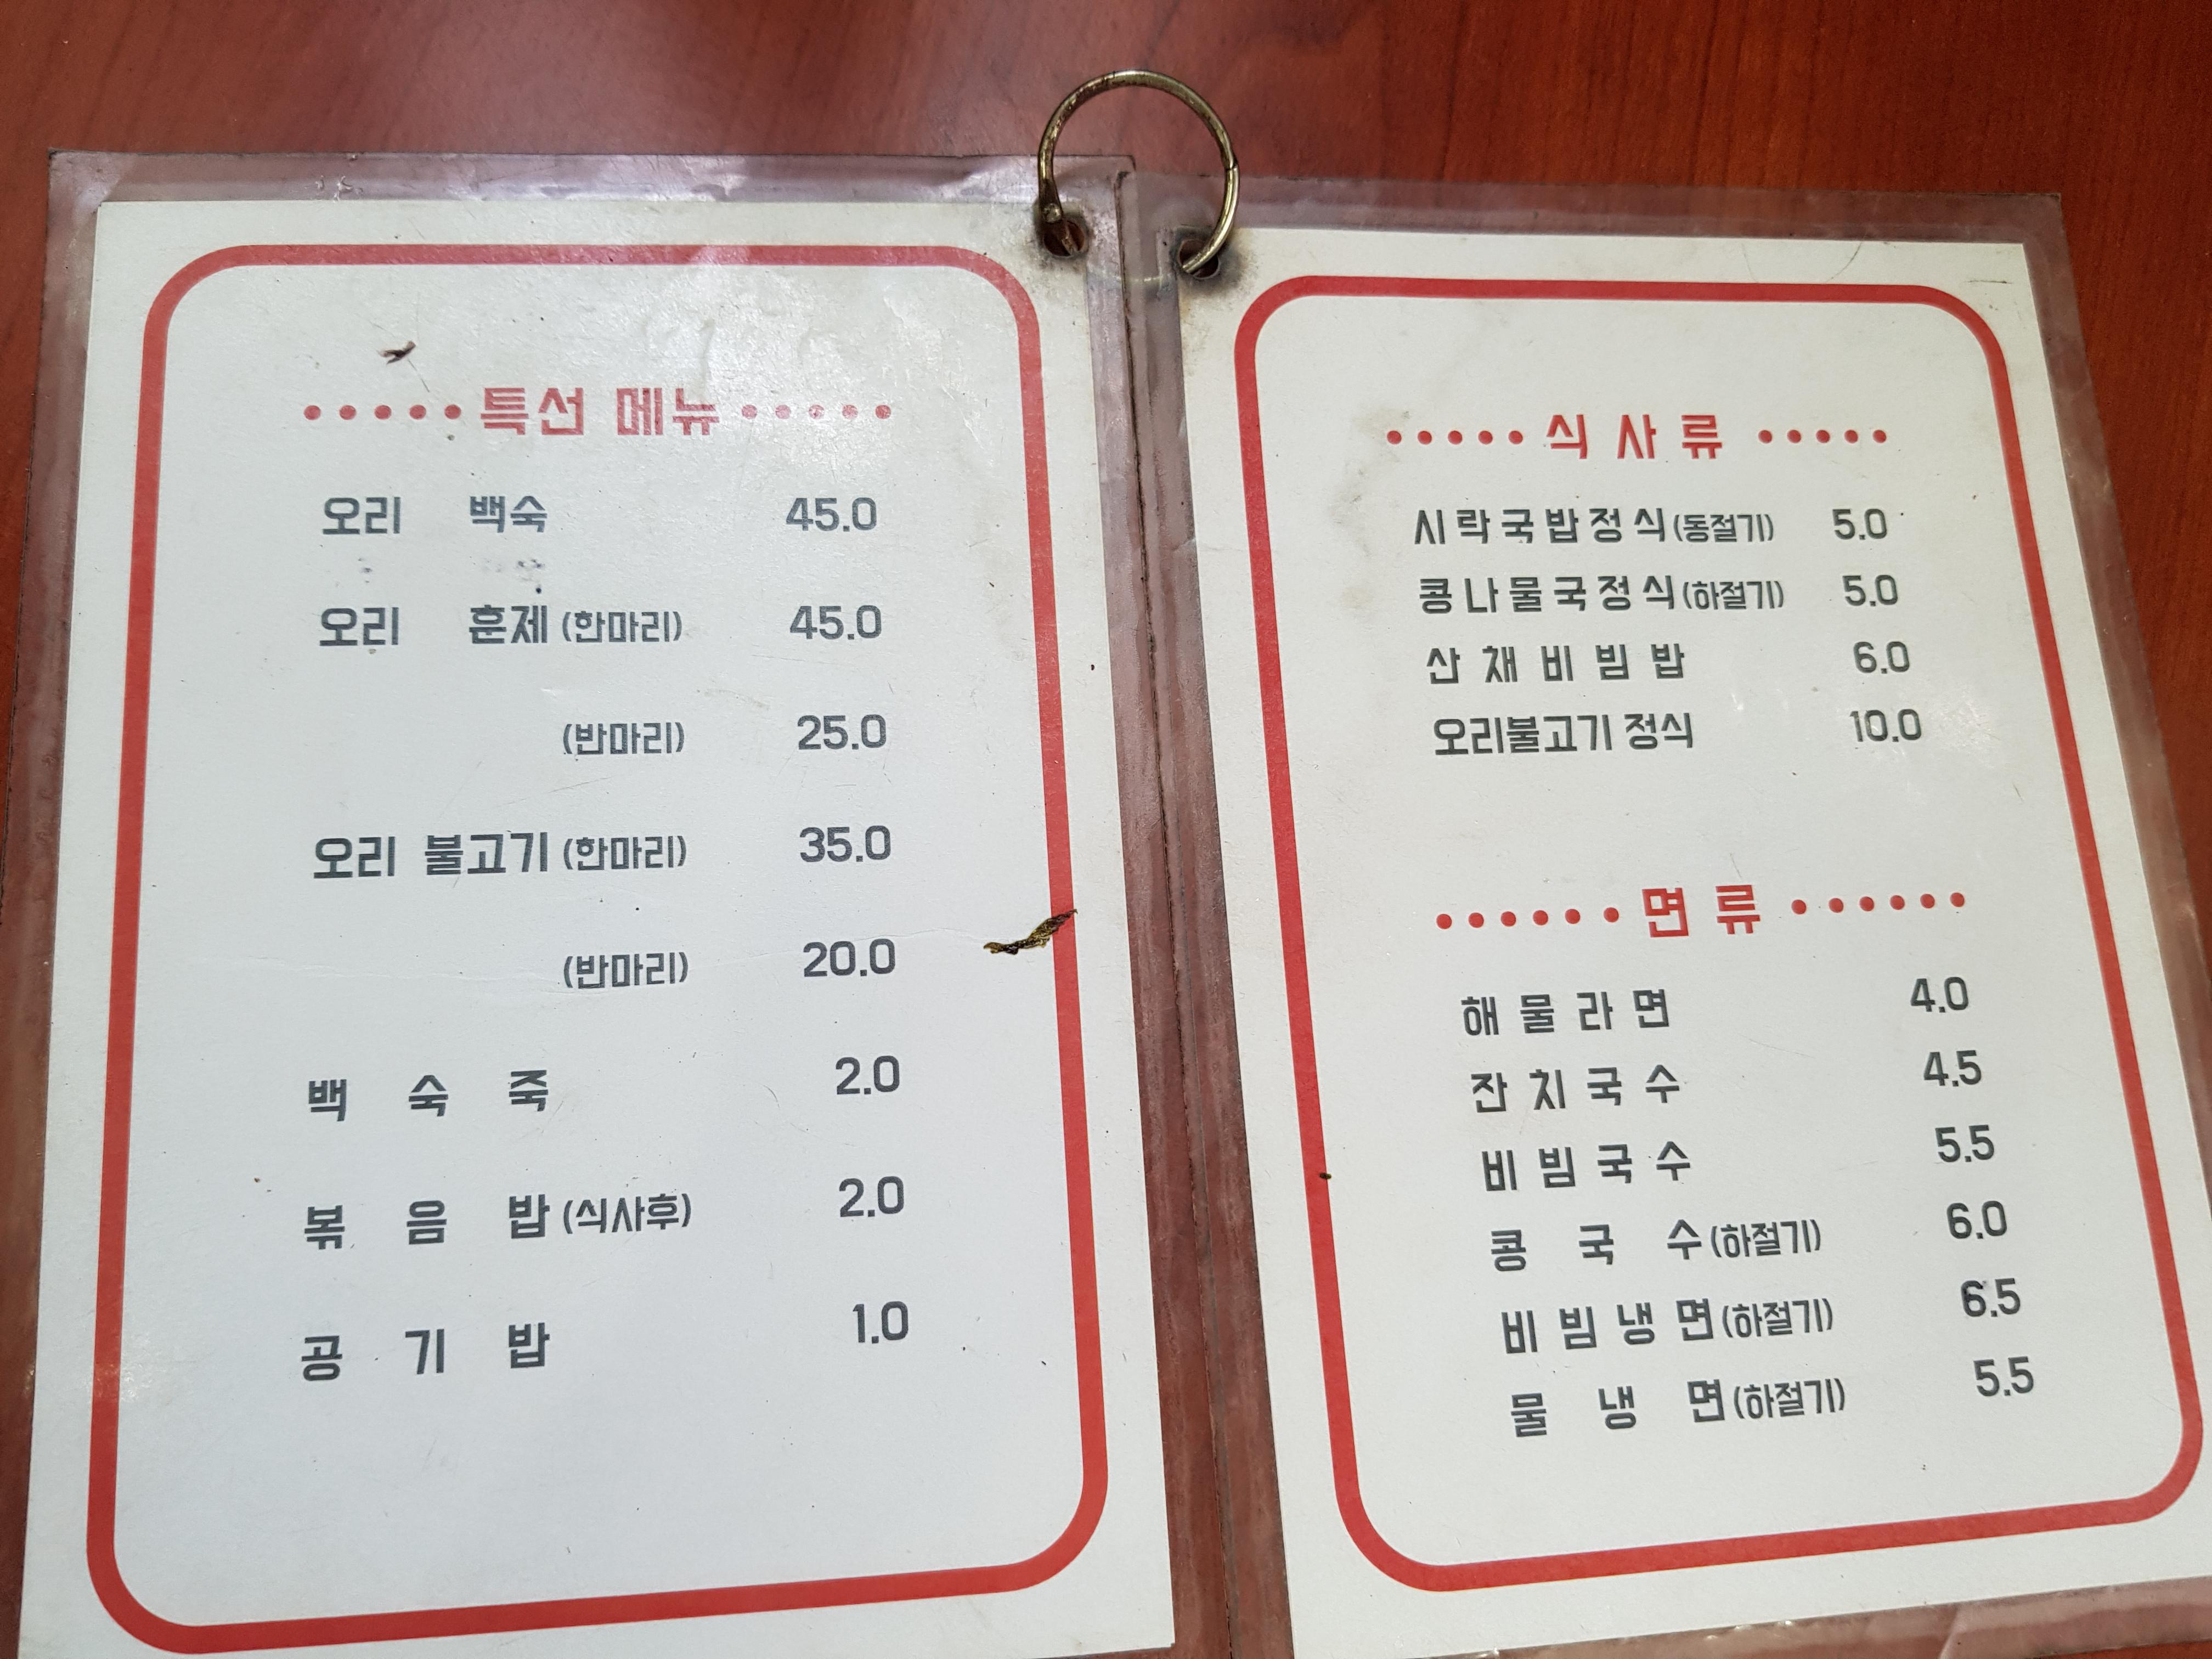 •••••특선 메뉴•••••
오리 백숙 45.0
오리 훈제 (한마리) 45.0
(반마리) 25.0
오리 불고기 (한마리) 35.0
(반마리) 20.0
백 숙 죽 2.0
볶 음 밥 (식사후) 2.0
공 기 밥 1.0
•••••식 사 류•••••
시락국밥정식(동절기) 5.0
콩나물국정식(하절기) 5.0
산 채 비 빔 밥 6.0
오리불고기 정식 10.0
••••••면 류••••••
해 물 라 면 4.0
잔 치 국 수 4.5
비 빔 국 수 5.5
콩 국 수(하절기) 6.0
비 빔 냉 면(하절기) 6.5
물 냉 면(하절기) 5.5